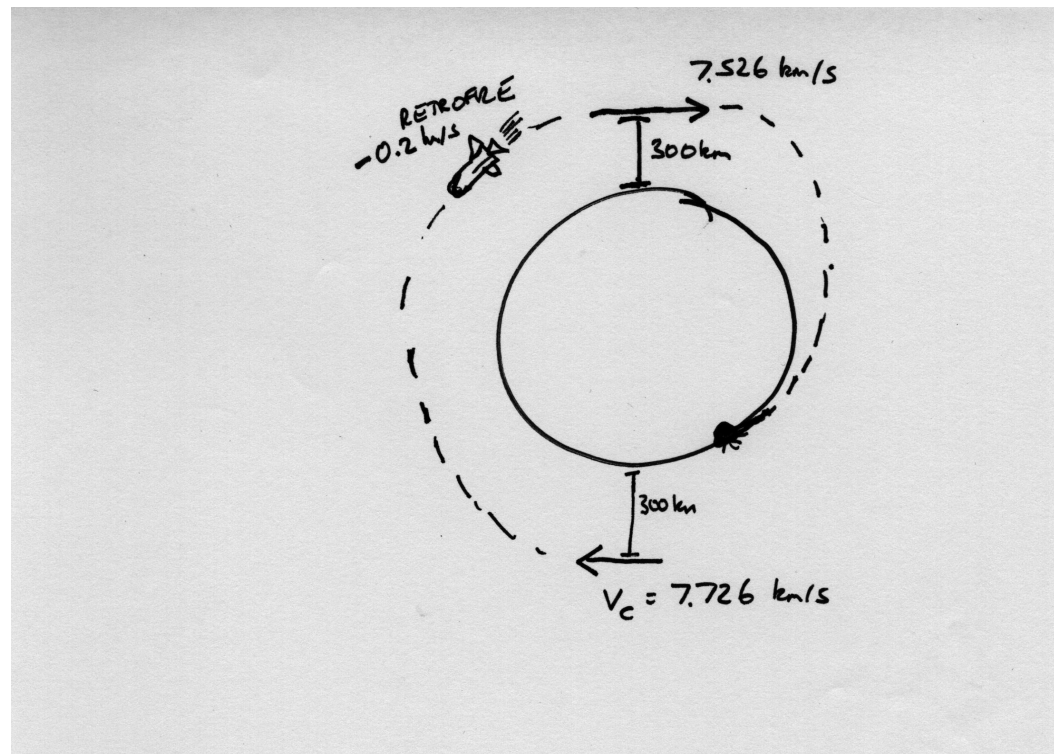 7.526 km/s
RETROFIRE
-0.2 km/s
300km
300km
Vc = 7.726 km/s